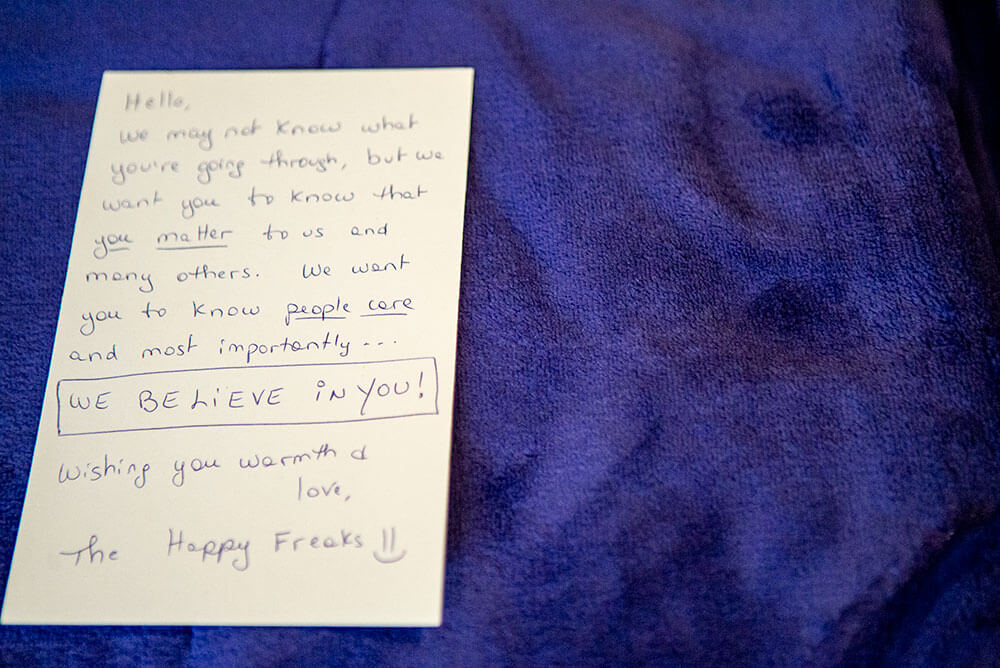 Hello,
we may not know what
you're going through, but we
want you to know that
you matter to us and
many others. We want
you to know people care
and most importantly...
WE BELIEVE IN YOU!
Wishing you warmth &
love,
The Happy Freaks